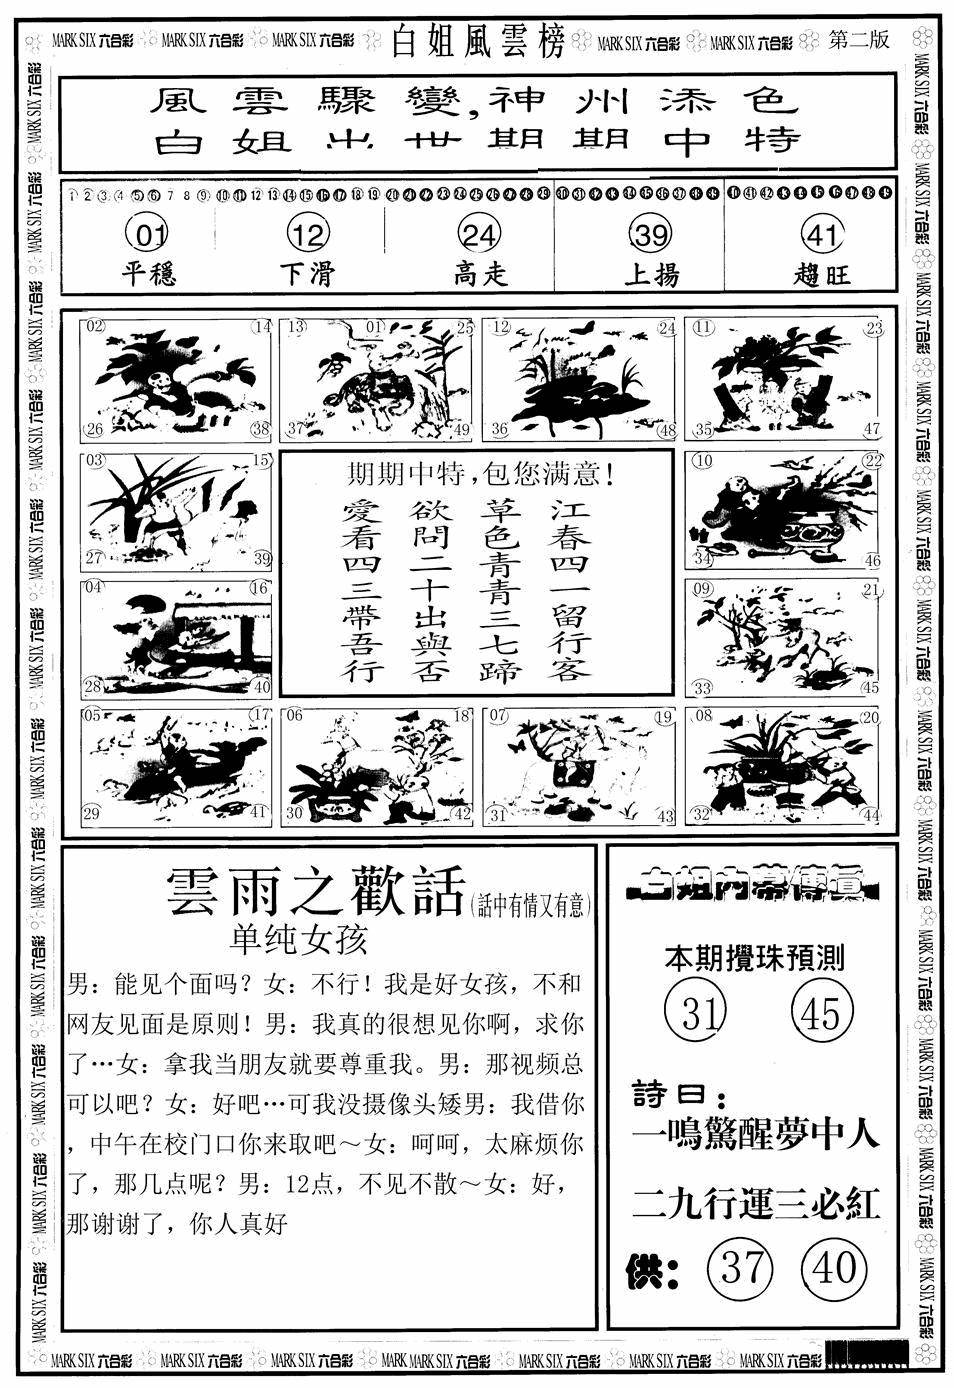 MARK SIX 六合彩 MARK SIX 六合彩 MARK SIX 六合彩 白姐風雲榜 MARK SIX 六合彩 MARK SIX 六合彩 第二版
風雲驟變,神州添色
白姐出世期期中特
1 2 3 4 5 6 7 8 9 10 11 12 13 14 15 16 17 18 19 20 21 22 23 24 25 26 27 28 29 30 31 32 33 34 35 36 37 38 39 40 41 42 43 44 45 46 47 48 49
01 12 24 39 41
平穩 下滑 高走 上揚 趨旺
02 14 13 01 25 12 24 11 23
26 38 37 49 36 48 35 47
03 15
27 39
04 16
28 40
期期中特,包您满意!
江春四一留行客
草色青青三七蹄
欲問二十出與否
愛看四三帶吾行
10 22
34 46
09 21
33 45
05 17 06 18 07 19 08 20
29 41 30 42 31 43 32 44
雲雨之歡話(話中有情又有意)
单纯女孩
男：能见个面吗？女：不行！我是好女孩，不和
网友见面是原则！男：我真的很想见你啊，求你
了…女：拿我当朋友就要尊重我。男：那视频总
可以吧？女：好吧…可我没摄像头矮男：我借你
，中午在校门口你来取吧～女：呵呵，太麻烦你
了，那几点呢？男：12点，不见不散～女：好，
那谢谢了，你人真好
白姐内幕傳真
本期攪珠預測
31 45
詩曰：
一鳴驚醒夢中人
二九行運三必紅
供：37 40
MARK SIX 六合彩 MARK SIX 六合彩 MARK SIX 六合彩 MARK MARK SIX 六合彩 MARK SIX 六合彩 MARK SIX 六合彩 MARK SIX 六合彩